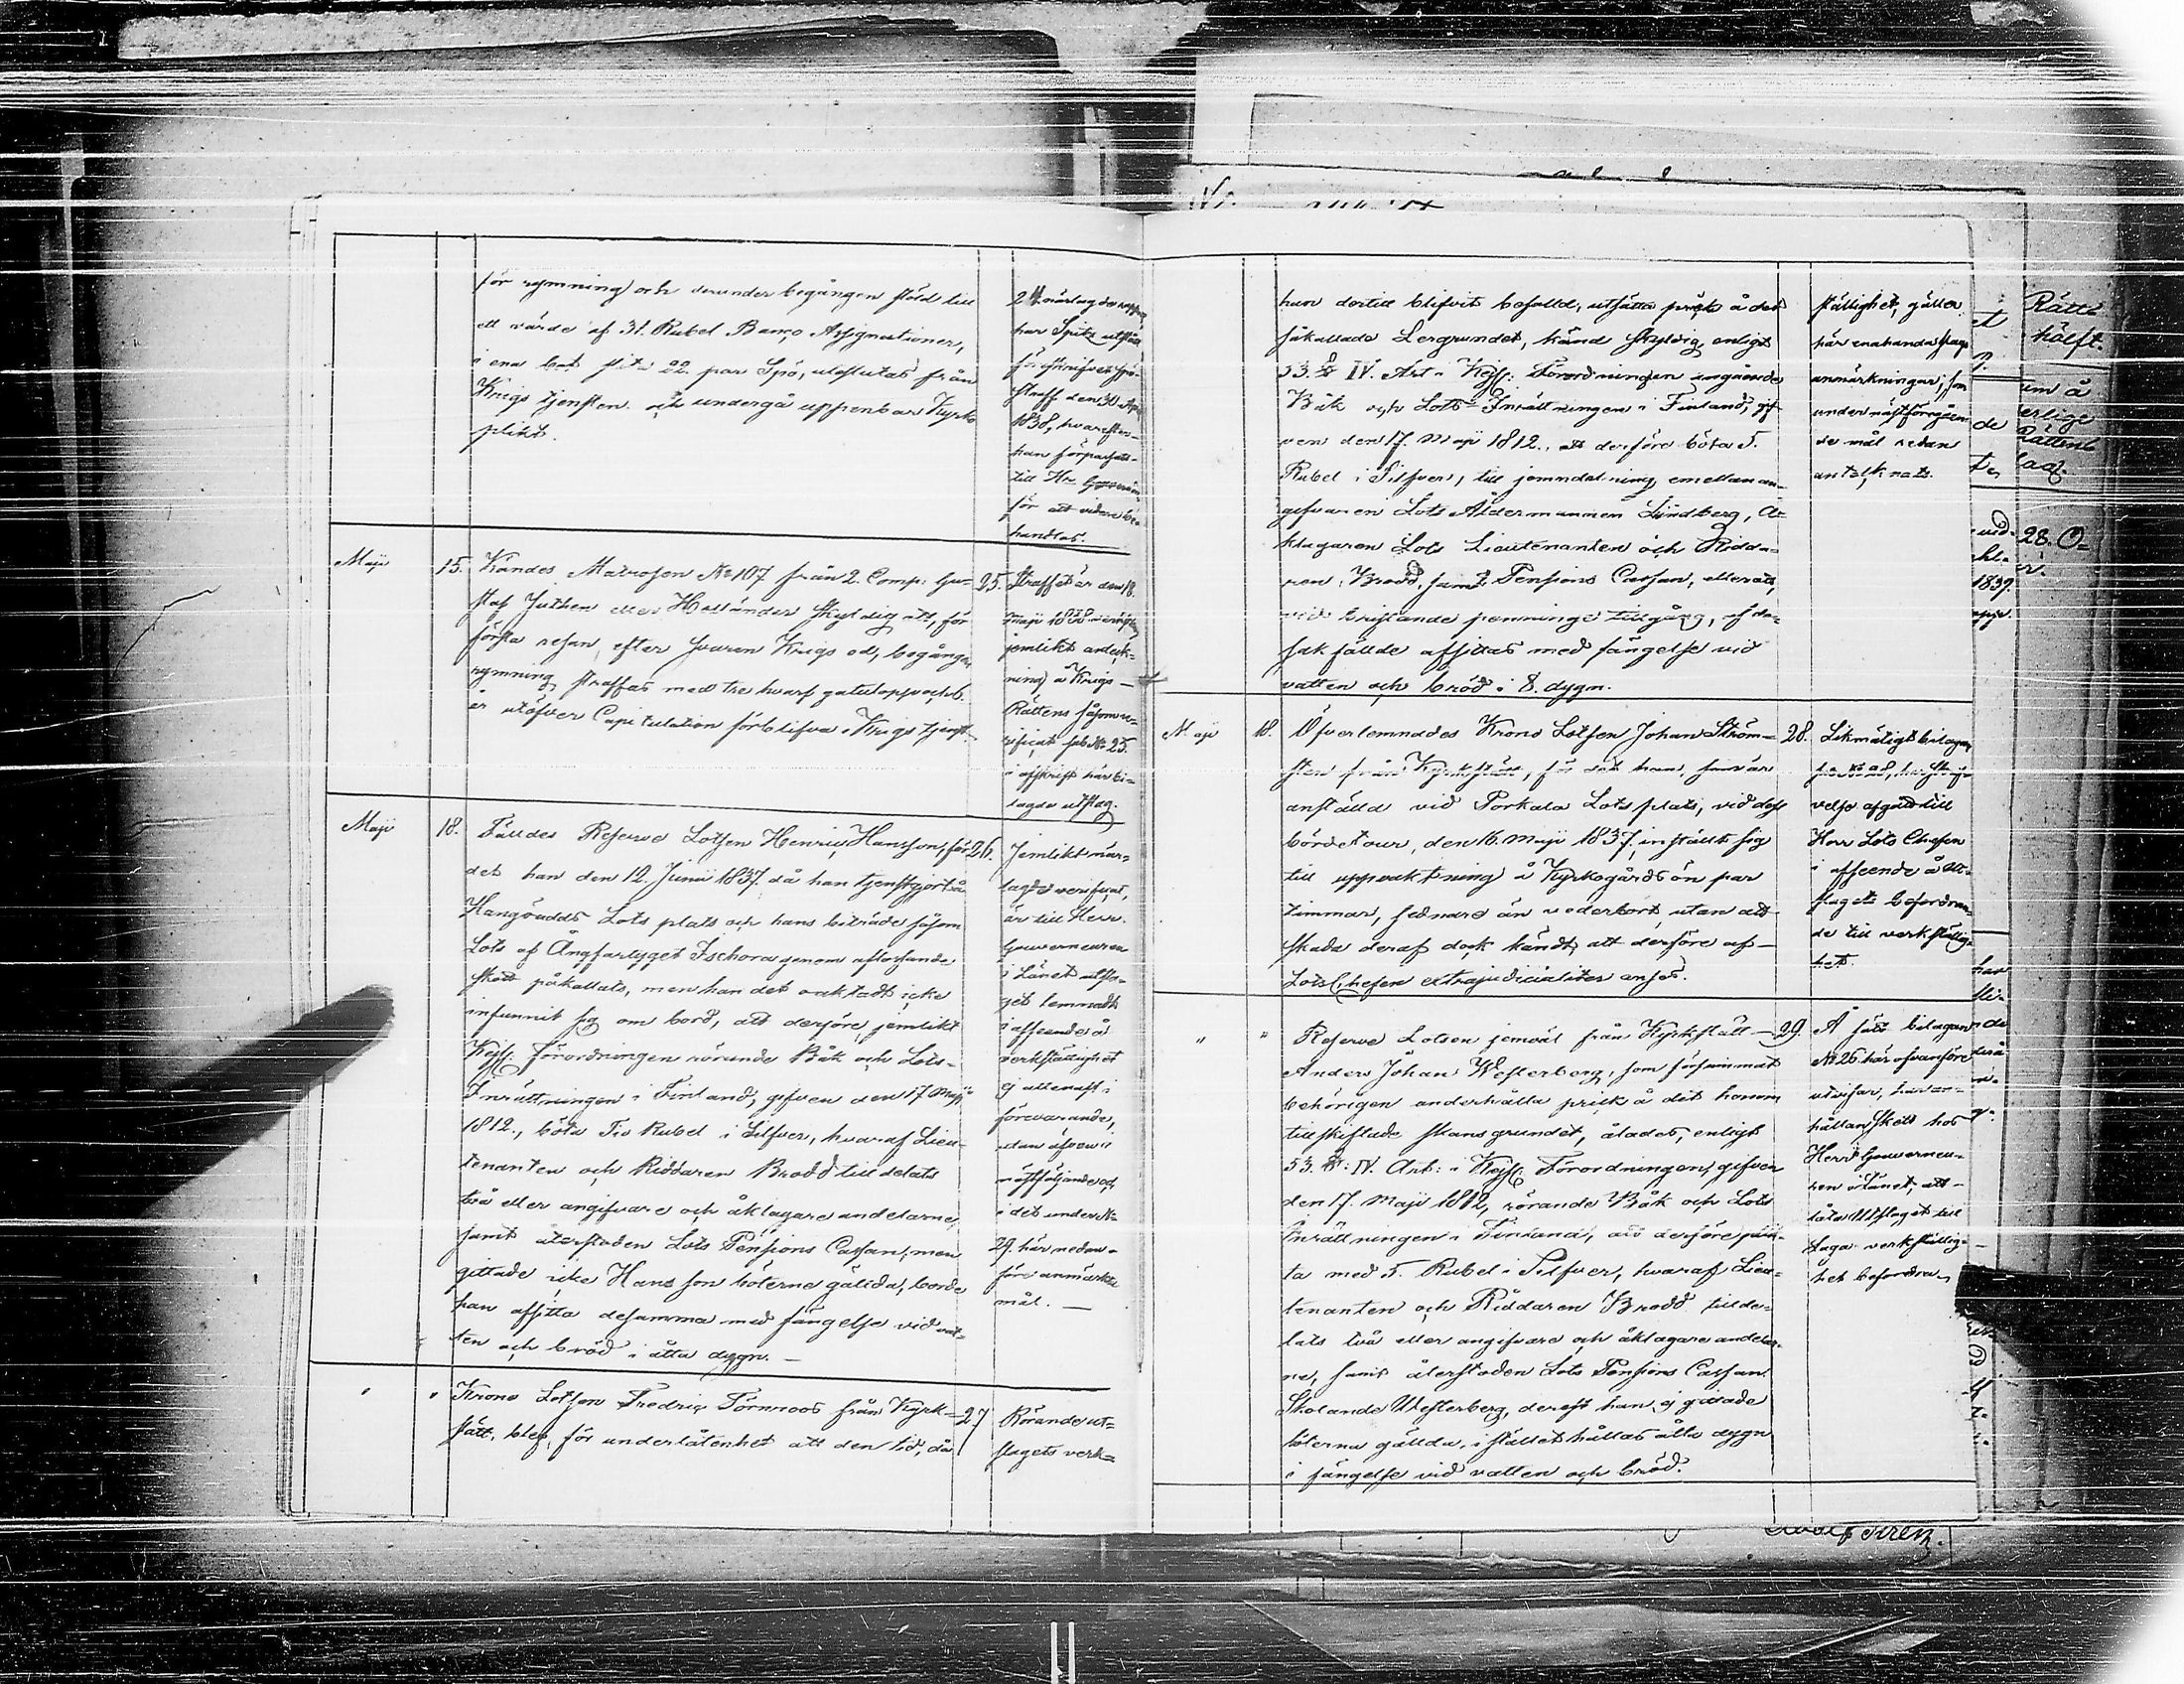 för rymning och derunder begången stöld till
ett värde af 31. Rubel Banco Assignationer,
i ena bot slita 22. par Spö, uteslutas från
Krigs tjensten och undergå uppenbar Kyrko
plikt.
har Spitz utstått
Spö-
straff den 30 Apr.
1838, hvarefter
han förpassats
till
för att vidare be-
handlas.
Maji 15. Kändes Matrosen No 107 från 2. Comp: Gu-
staf Juthen eller Holländer skyldig att, för
första resan, efter svuren Krigs ed, begången
rymning straffas med tre hvarf gatulopp och 6.
år utöfver Capitulation förblifva i Krigs tjenst.
25. Straffet är den 18.
Maji 1838
jemlikt anteck-
ning å Krigs-
Rättens såsom ve-
rificat sub No 25.
i afskrift här bi-
lagde utslag.
Maji 18. Fälldes Reserve Lotsen Henric Hansson, för
det han den 12. Junii 1837. då han tjenstgjort å
Hangöudds Lots plats och hans biträde såsom
Lots af Ångfartyget Ischora genom aflossande
skott påkallats, men han det oaktadt icke
infunnit sig om bord, att derföre, jemlikt
Kejs: Förordningen rörande Båk och Lots-
Inrättningen i Finland, gifven den 17 Maji
1812., böta Tio Rubel i Silfver, hvaraf Lieu-
tenanten och Riddaren Brodd tilldelats
två eller angifvare och åklagare andelarne,
samt återstoden Lots Pensions Cassan; men
gittade icke Hansson böterne gällda, borde
han afsitta desamma med fängelse vid vat-
ten och bröd i åtta dygn. —
26. Jemlikt när-
lagde verificat,
är till Herr
Gouverneuren
i Länet utsla-
get lemnadt
i afseende å
verkställighet
ej allenast i
förevarande,
utan äfven i
nästföljande och
i det under No
29. här nedan-
före anmärkte
mål. —
" " Krono Lotsen Fredric Törnroos från Kyrk-
slätt, blef, för underlåtenhet att den tid, då
27 Rörande ut-
slagets verk-
han dertill blifvit befalld, utsätta prick å det
såkallade Lergrundet, känd skyldig, enligt
53. § IV. Art. i Kejs: Förordningen angående
Båk och Lots-Inrättningen i Finland, gif-
ven den 17. Maji 1812., att derföre böta 5.
Rubel i Silfver, till jemndelning emellan an-
gifvaren Lots Åldermannen Lindberg, å-
klagaren Lots Lieutenanten och Ridda-
ren Brodd, samt Pensions Cassan, eller att,
vid bristande penninge tillgång, af den
sakfällde afsittas med fängelse vid
vatten och bröd i 8. dygn.
ställighet, gäller
här enahanda
anmärkningar, som
under nästföregåen-
de mål redan
antecknats.
Maji 18. Öfverlemnades Krono Lotsen Johan Ström-
sten från Kyrkslätt, för det han, som är
anställd vid Porkala Lots plats, vid dess
börds tour, den 16. Maji 1837, inställt sig
till uppvaktning å Kyrkogårdsön par
timmar, sednare än vederbort, utan att
skada deraf dock händt, att derföre af
Lots Chefen extrajudicialiter anses.
28. Likmätigt bilagan
velse afgått till
Herr Lots Chefen
i afseende å ut-
slagets befordran-
de till verkställig-
het.
" " Reserve Lotsen jemväl från Kyrkslätt
Anders Johan Westerberg, som försummat
behörigen underhålla prick å det honom
tillskiftade Skansgrundet, ålades, enligt
53. §: IV. Art: i Kejs: Förordningen, gifven
den 17. Maji 1812, rörande Båk och Lots
Inrättningen i Finland, att derföre plik-
ta med 5. Rubel i Silfver, hvaraf Lieu-
tenanten och Riddaren Brodd tillde-
lats två eller angifvare och åklagare andelar-
ne, samt återstoden Lots Pensions Cassan.
Skolande Westerberg, derest han ej gittade
böterna gällda, i stället hållas åtta dygn
i fängelse vid vatten och bröd.
29. Å sätt bilagan
No 26 här ofvanföre
utvisar, har an-
hållan skett hos
Herr Gouverneu-
ren i Länet, att
låta Utslaget till
Laga verkställig-
het befordra.
Rätte
hälft.
um å
erlige
Rättens
lag.
28. O-
1839.